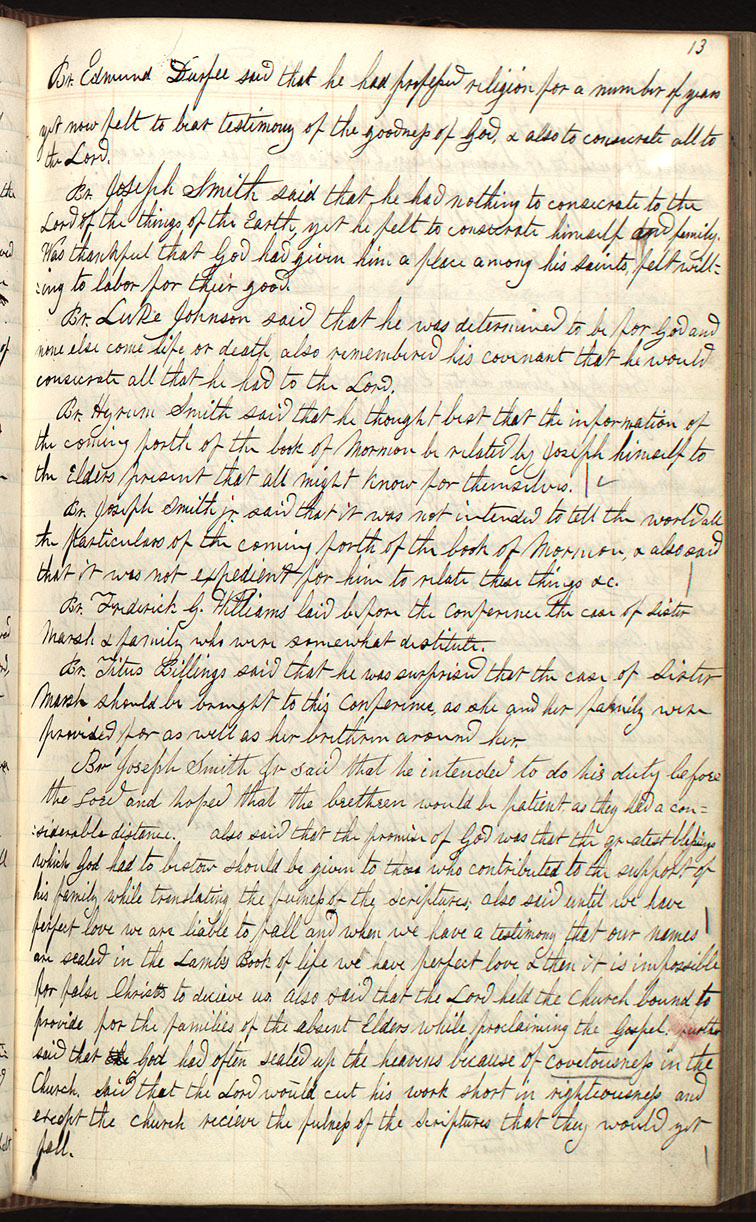 13
Br. Edmund Durfee said that he had professed religion for a number of years
yet now felt to bear testimony of the goodness of God, & also to consecrate all to
the Lord.
Br. Joseph Smith said that he had nothing to consecrate to the
Lord of the things of the Earth, yet he felt to consecrate himself and family.
Was thankful that God had given him a place among his saints, felt will=
=ing to labor for their good.
Br. Luke Johnson said that he was determined to be for God and
none else come life or death, also remembered his covenant that he would
consecrate all that he had to the Lord.
Br. Hyrum Smith said that he thought best that the information of
the coming forth of the book of Mormon be related by Joseph himself to
the Elders present that all might know for themselves.
Br. Joseph Smith jr. said that it was not intended to tell the world all
the particulars of the coming forth of the book of Mormon, & also said
that it was not expedient for him to relate these things &c.
Br. Frederick G. Williams laid before the conference the case of sister
Marsh & family who were somewhat destitute.
Br. Titus Billings said that he was surprised that the case of sister
Marsh should be brought to this conference, as she and her family were
provided for as well as her brethren around her.
Br. Joseph Smith Jr said that he intended to do his duty before
the Lord and hoped that the brethren would be patient as they had a con=
=siderable distance. also said that the promise of God was that the greatest blessings
which God had to bestow should be given to those who contributed to the support of
his family while translating the fulness of the Scriptures; also said until we have
perfect love we are liable to fall and when we have a testimony that our names
are sealed in the Lamb's Book of life we have perfect love & then it is impossible
for false Christs to decieve us. also said that the Lord held the Church bound to
provide for the families of the absent Elders while proclaiming the Gospel: further
said that God had often sealed up the heavens because of covetousness in the
Church. Said that the Lord would cut his work short in righteousness and
except the church recieve the fulness of the Scriptures that they would yet
fall.